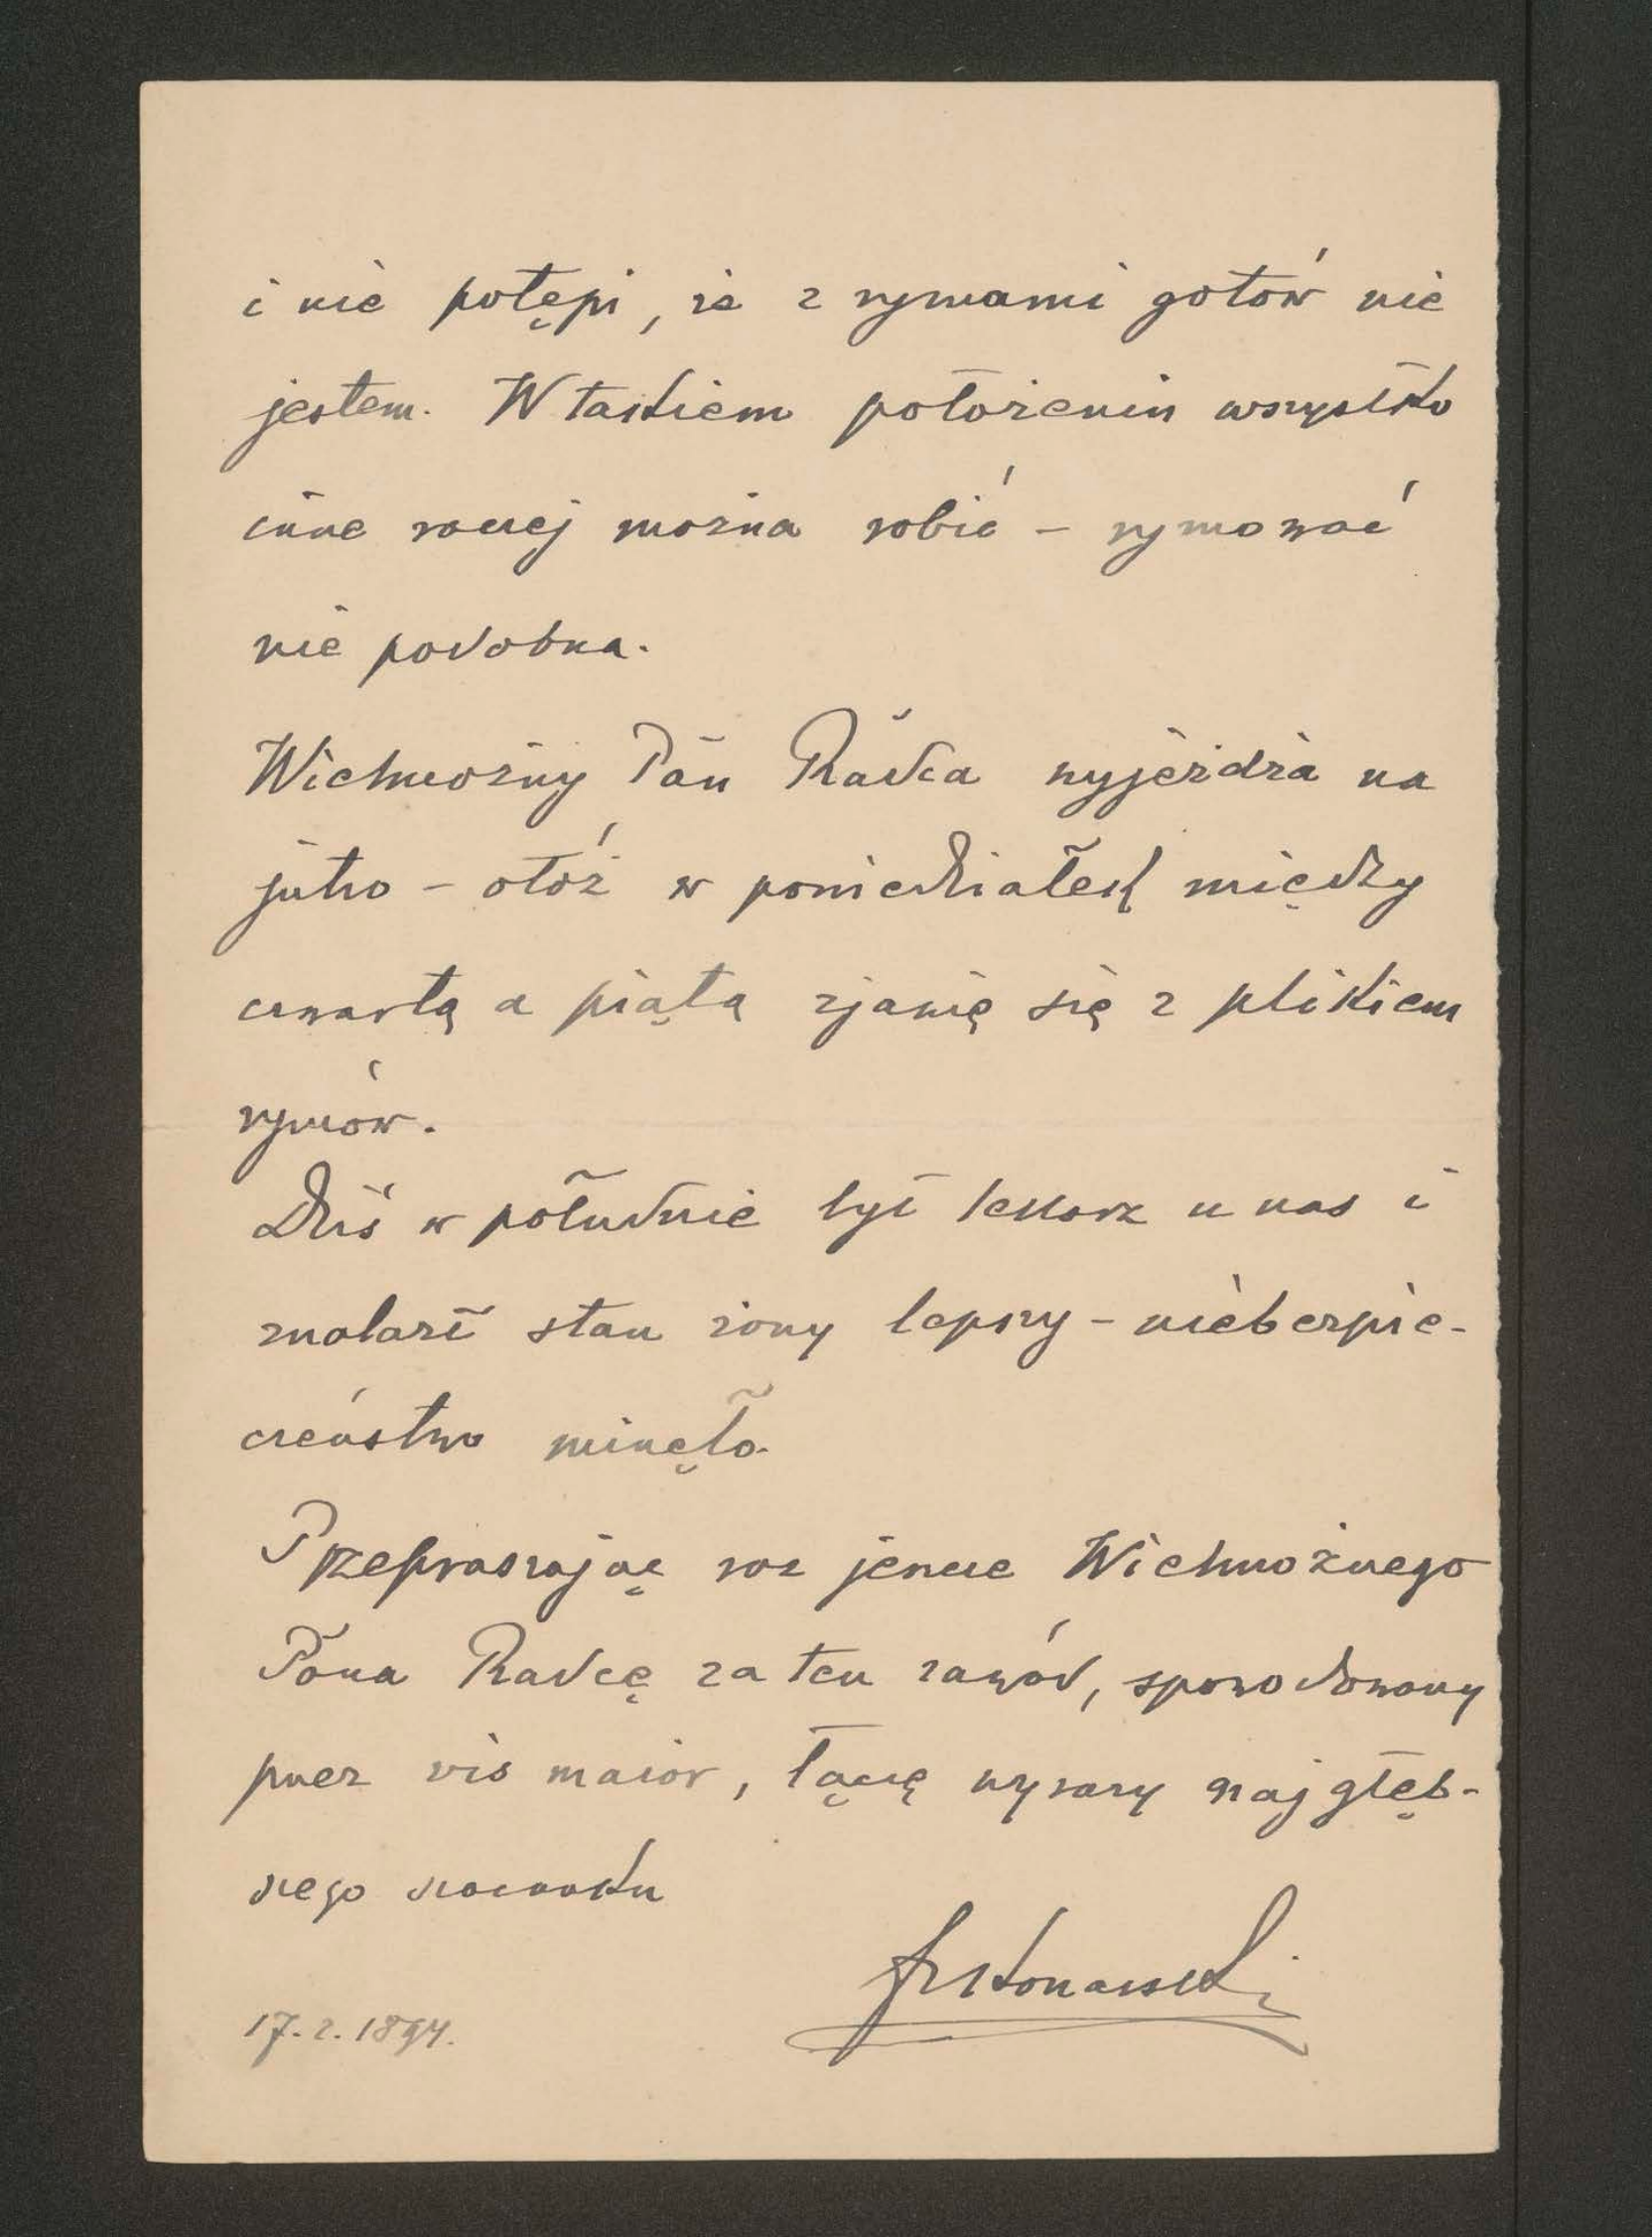 i nie potępi, że z rymami gotów nie
jestem. W takiem położeniu wszystko
inne raczej można robić – rymować
nie podobna.
Wielmożny Pan Radca wyjeżdża na
jutro – otóż w poniedziałek między
czwartą a piątą zjawię się z plikiem
rymów.
Dziś w południe był lekarz u nas i
znalazł stan żony lepszy – niebezpie-
czeństwo minęło.
Przepraszając raz jeszcze Wielmożnego
Pana Radcę za ten zawód, spowodowany
przez vis maior, łączę wyrazy najgłęb-
szego szacunku
17.2.1894.